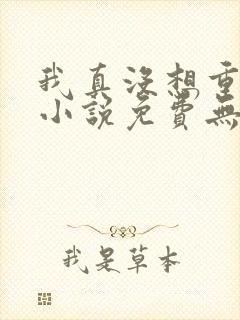 我真沒想重
小說免費無
我是草本